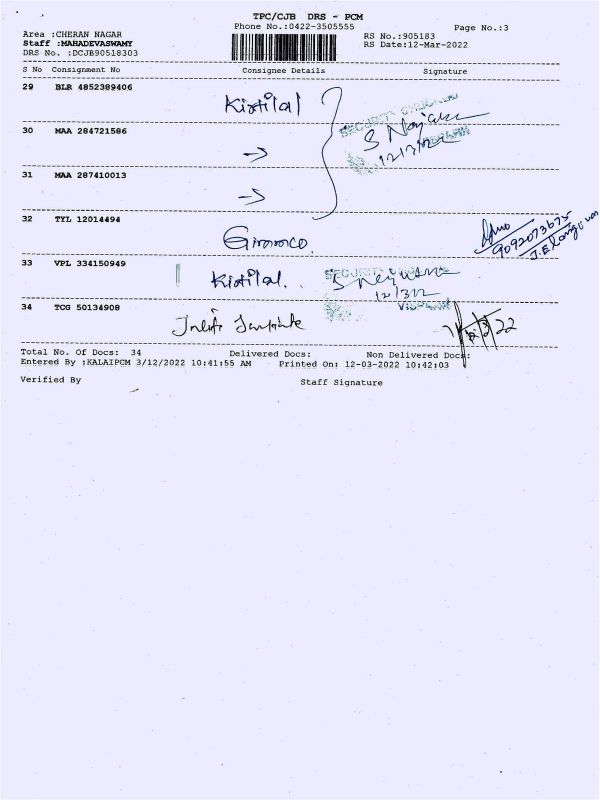 TPC/CJB DRS - PCM
Phone No.:0422-3505555
Page No.:3
Area :CHERAN NAGAR
Staff :MAHADEVASWAMY
DRS No. :DCJB90518303
RS No.:905183
RS Date:12-Mar-2022
S No Consignment No Consignee Details Signature
29 BLR 4852389406 Kirtilal
30 MAA 284721586
12/3/22
31 MAA 287410013
32 TYL 12014494
9092073675
33 VPL 334150949 Kirtilal.
34 TCG 50134908
Total No. Of Docs: 34 Delivered Docs: Non Delivered Docs:
Entered By :KALAIPCM 3/12/2022 10:41:55 AM Printed On: 12-03-2022 10:42:03
Verified By Staff Signature